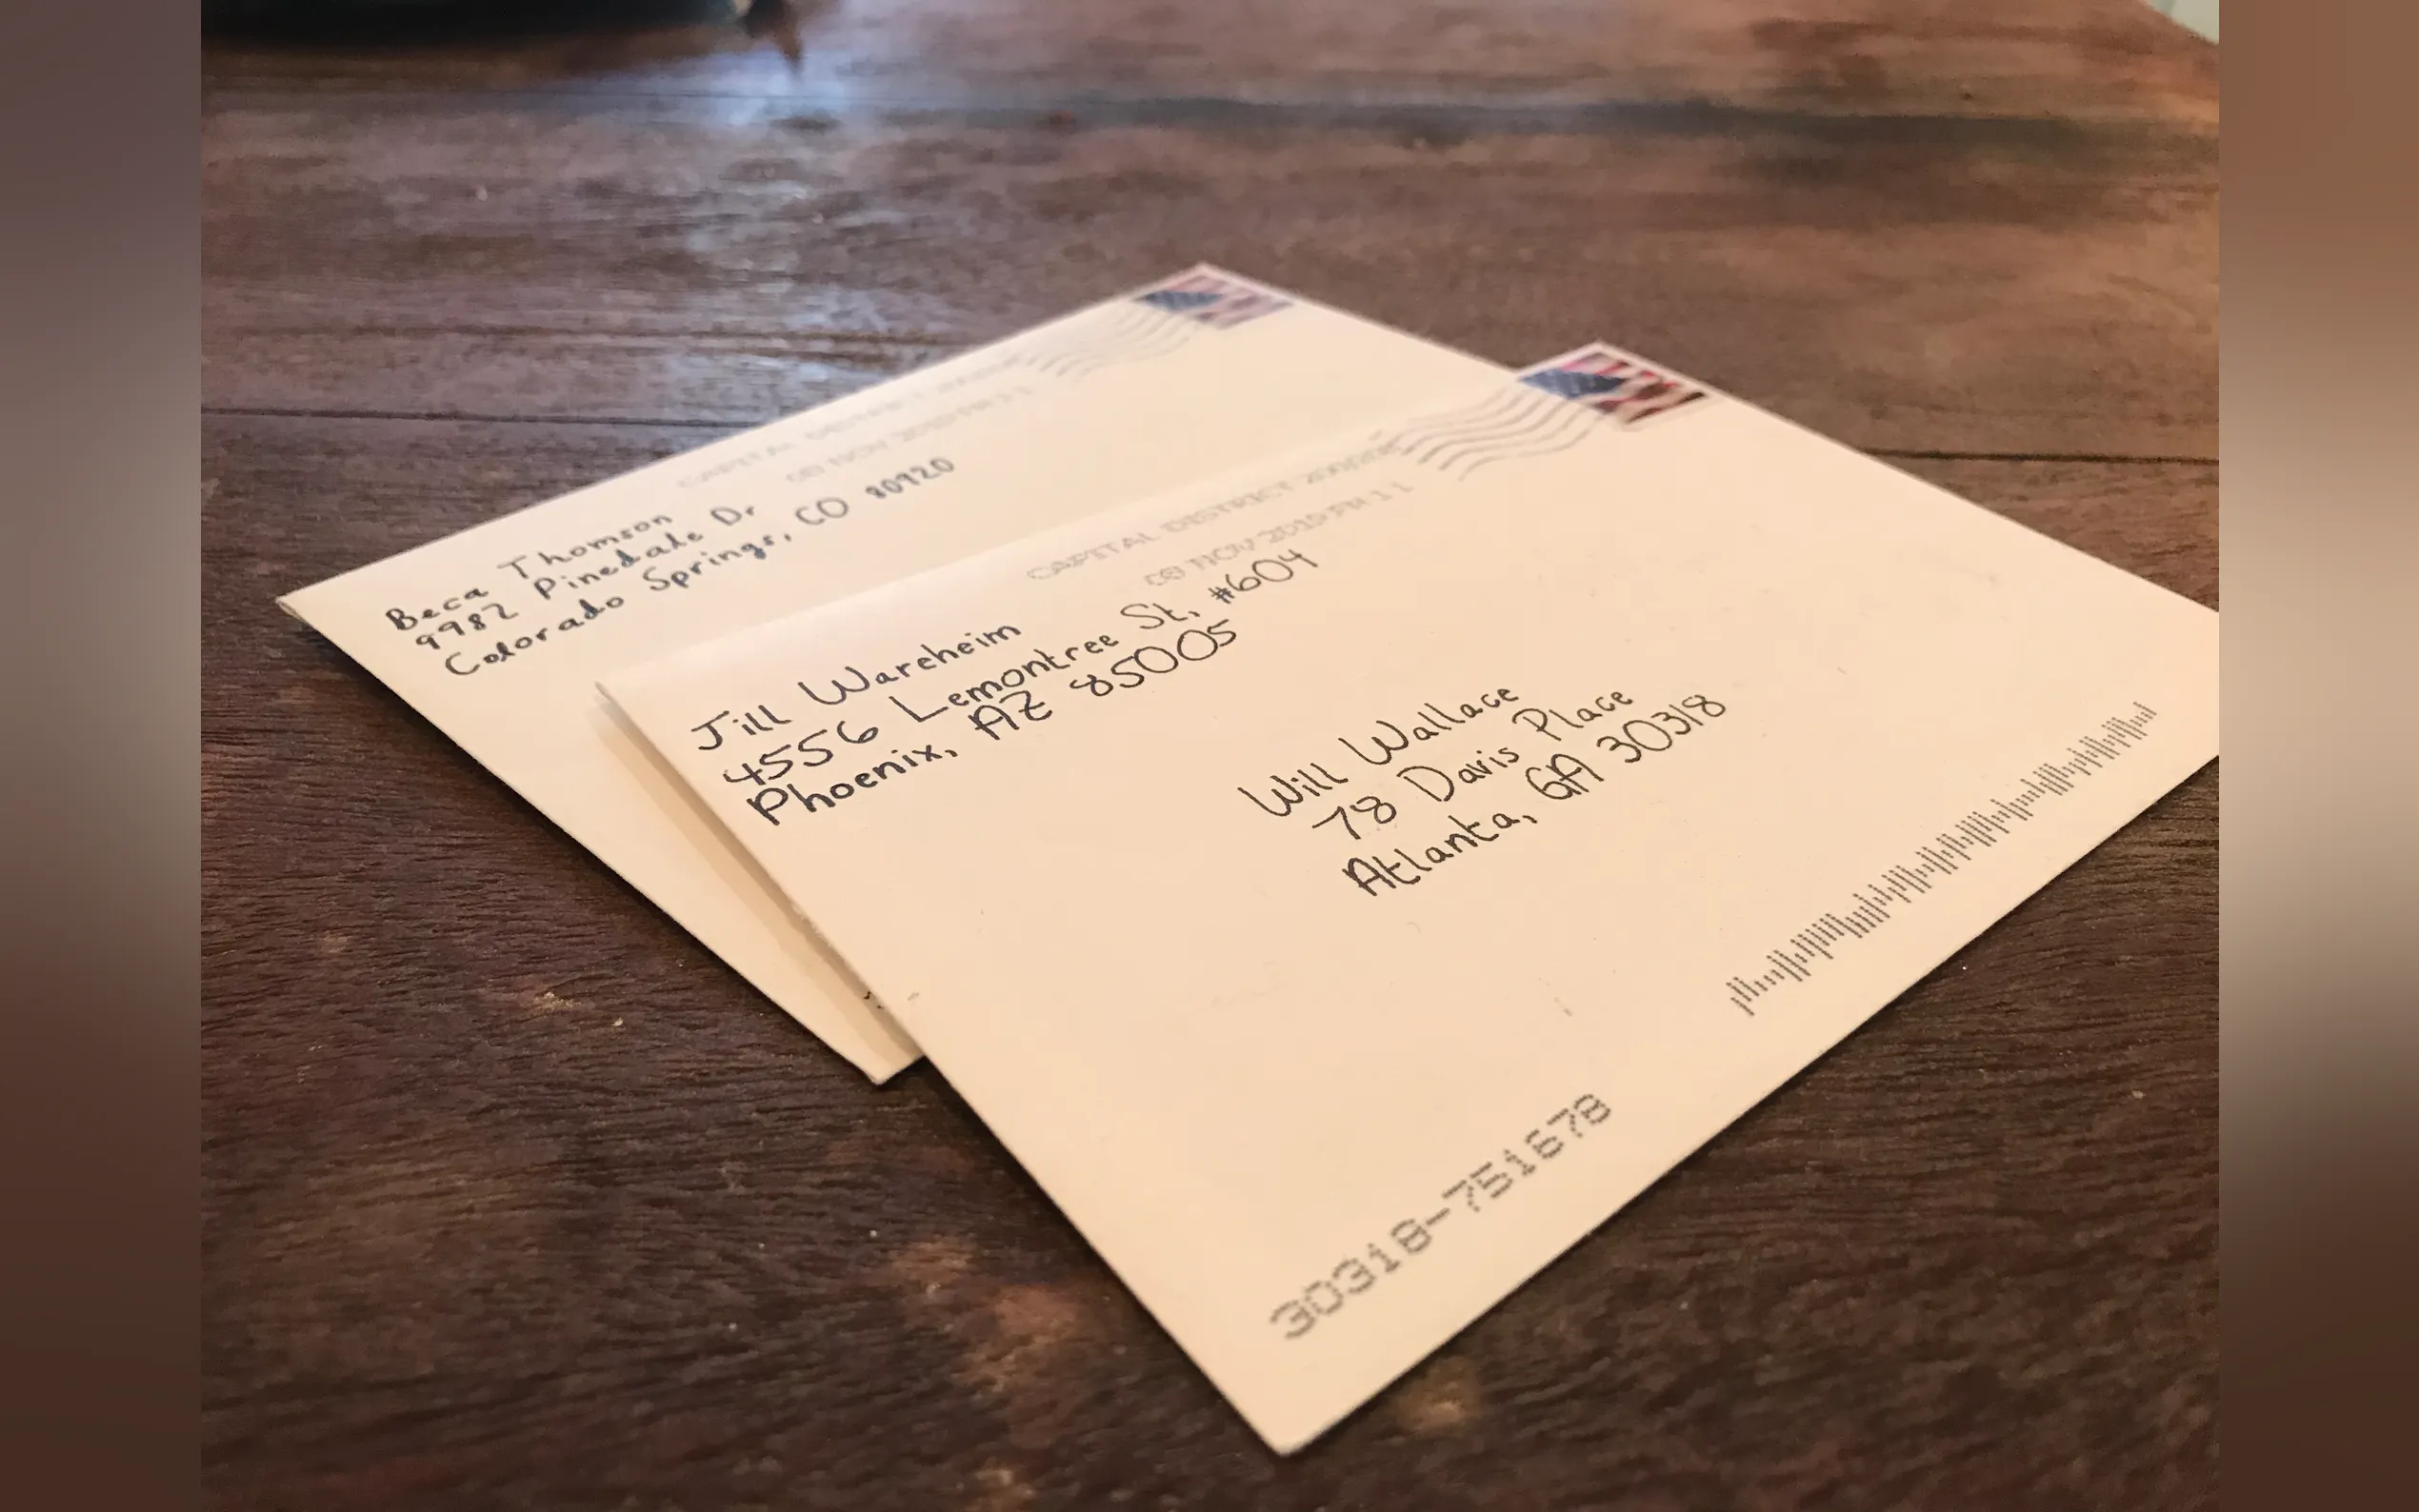 Beca Thomson
9982 Pinedale Dr
Colorado Springs, CO 80920
CAPITAL DISTRICT
08 NOV 2019 PM 1 L
Jill Wareheim
4556 Lemontree St, #604
Phoenix, AZ 85005
Will Wallace
78 Davis Place
Atlanta, GA 30318
30318-751678